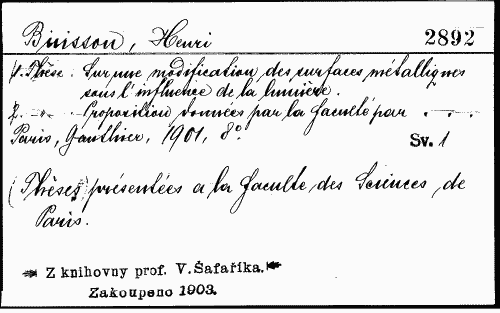 Buisson, Henri 2892
1. Thèse: Sur une modification des surfaces métalliques
sous l'influence de la lumière.
2. -"- Proposition données par la faculté par . . . .
Paris, Gauthier, 1901, 8° Sv. 1
(Thèses) présentées a la faculte des Sciences de
Paris.
Z knihovny prof. V. Šafaříka.
Zakoupeno 1903.